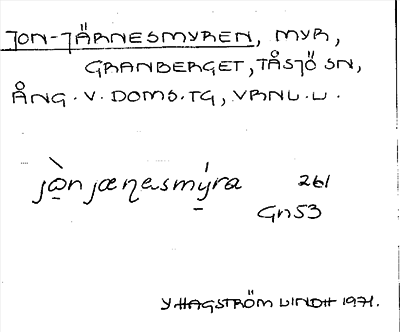 JON-JÄRNESMYREN, MYR,
GRANBERGET, TÅSJÖ SN,
ÅNG. V. DOMS. TG, VRNL. U.
jȯ̱̀n jæɳasmý̱ra 261
Gn53
Y HAGSTRÖM LINDH 1971.